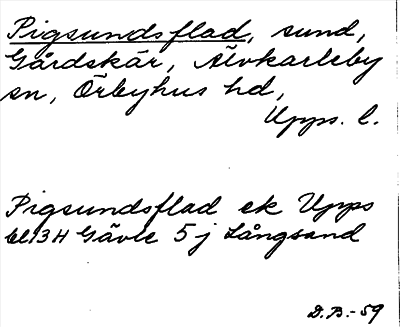 Pigsundsflad, sund,
Gårdskär, Älvkarleby
sn, Örbyhus hd,
Upps. l.
Pigsundsflad ek Upps
bl 13H Gävle 5 j Långsand
D.B.-59